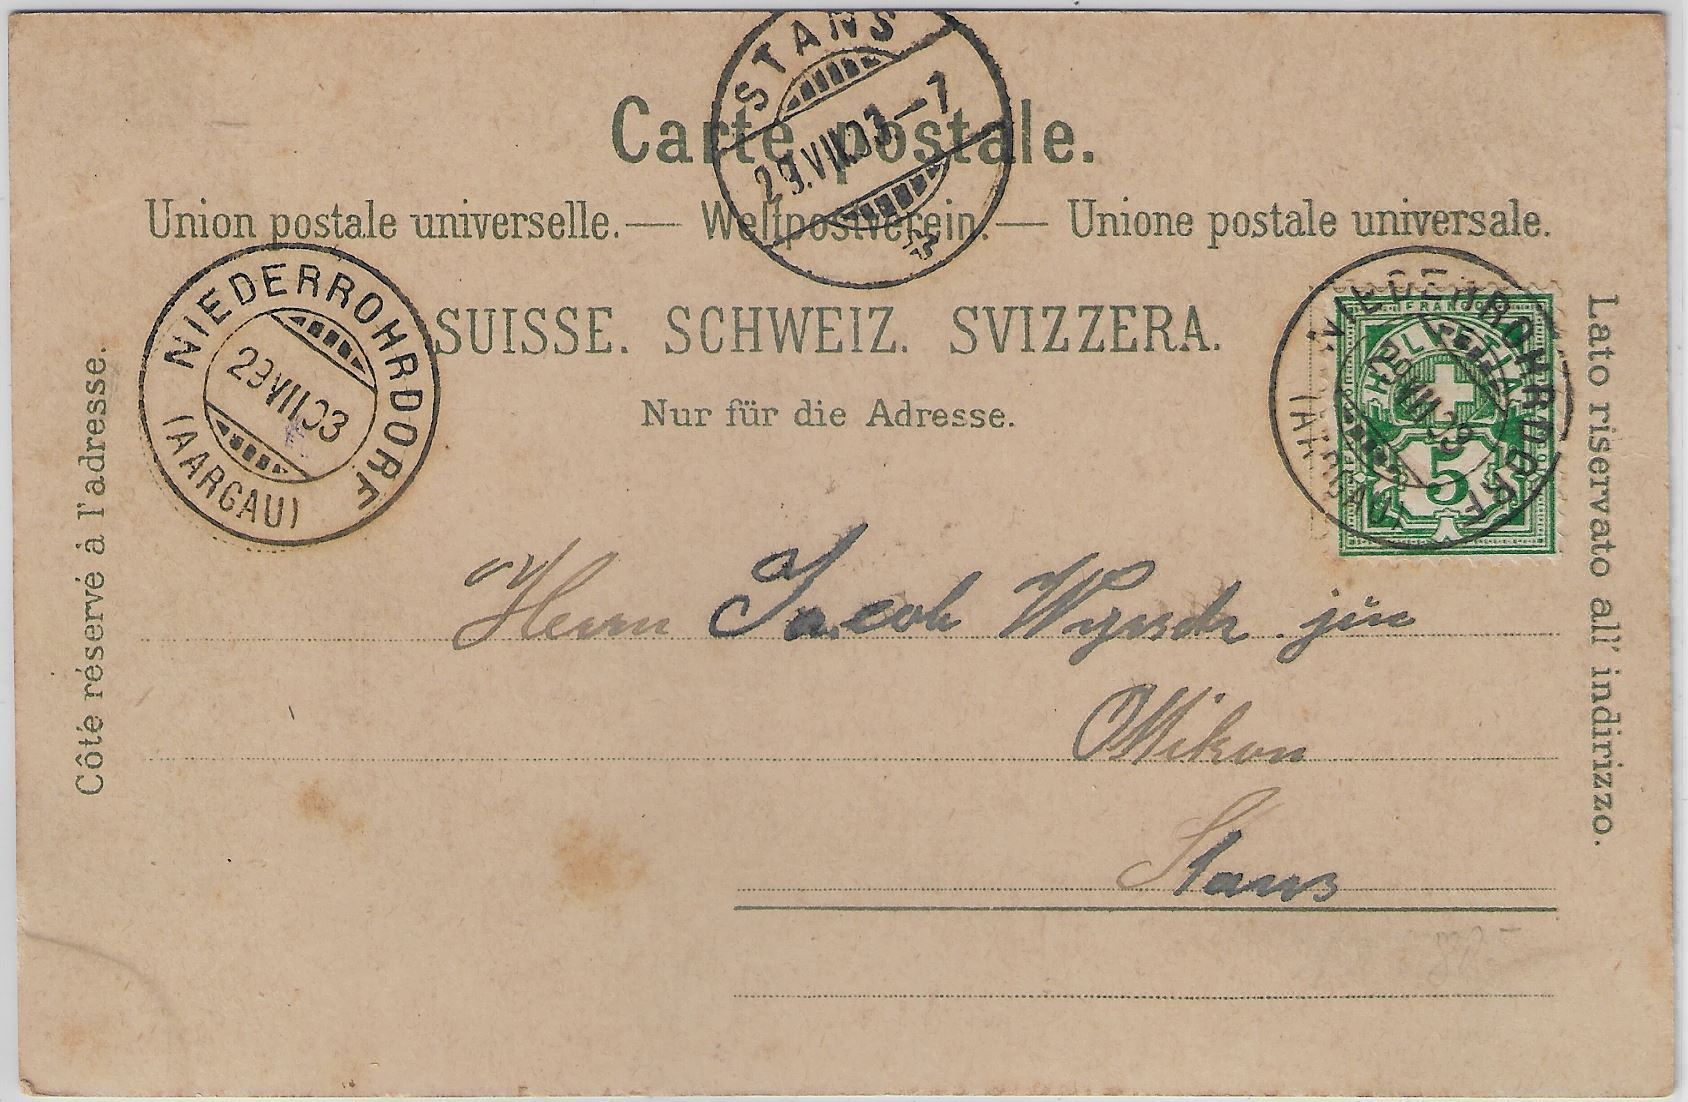 STANS
29.VII.03.–7
Carte postale.
Union postale universelle. — Weltpostverein. — Unione postale universale.
NIEDERROHRDORF
29 VII 03
(AARGAU)
SUISSE. SCHWEIZ. SVIZZERA.
Nur für die Adresse.
Côté réservé à l'adresse.
Lato riservato all' indirizzo.
NIEDERROHRDORF
(AARGAU)
FRANCO
HELVETIA
5
Herrn Jacob Wyrsch jün
Stans